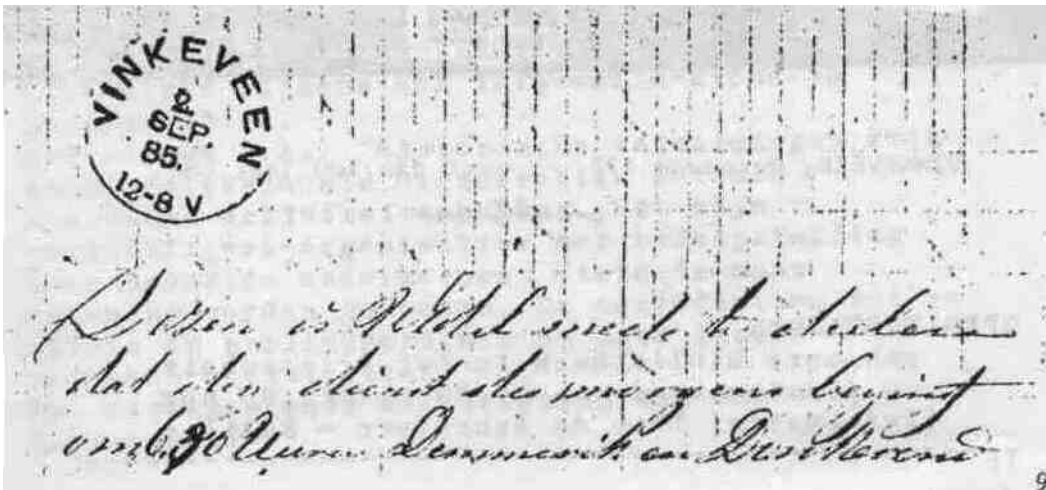 VINKEVEEN
2
SEP.
85.
12-8 V
Dezen is mede te deelen
dat den dienst des morgens begint
om 6,30 Uuren Demmerik en
9